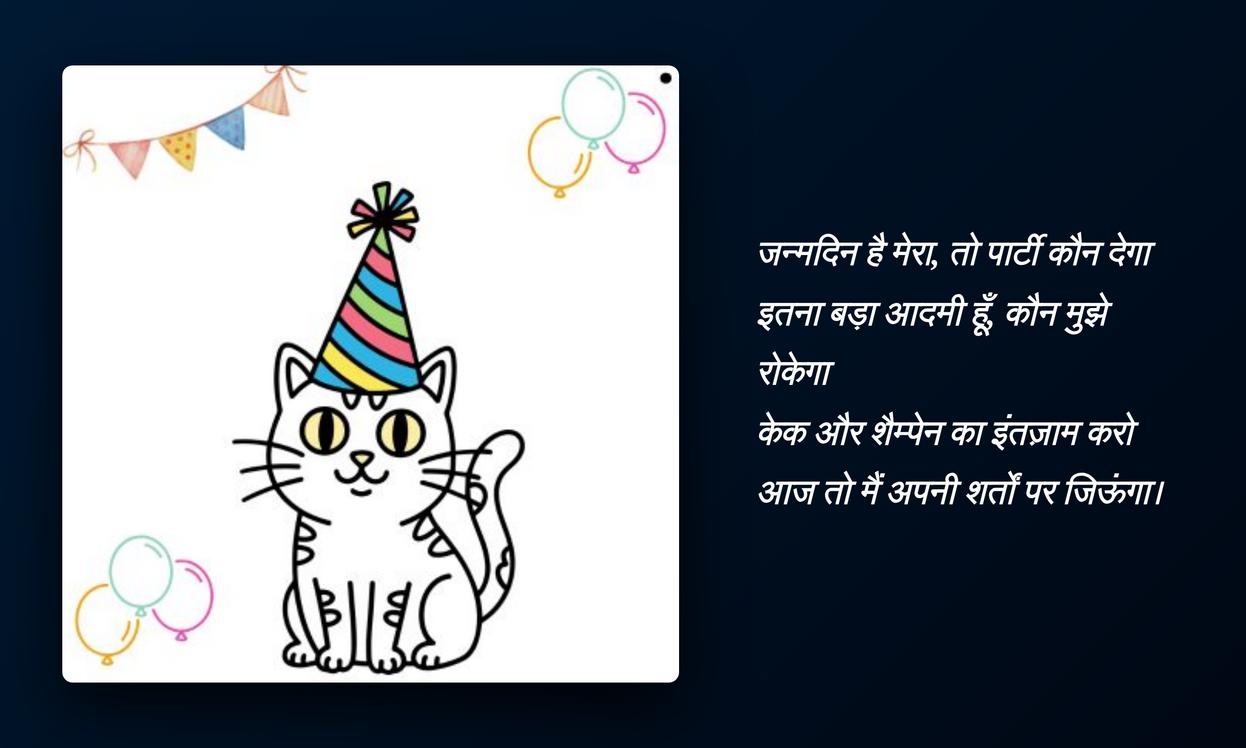 जन्मदिन है मेरा, तो पार्टी कौन देगा
इतना बड़ा आदमी हूँ, कौन मुझे
रोकेगा
केक और शैम्पेन का इंतज़ाम करो
आज तो मैं अपनी शर्तों पर जिऊंगा।